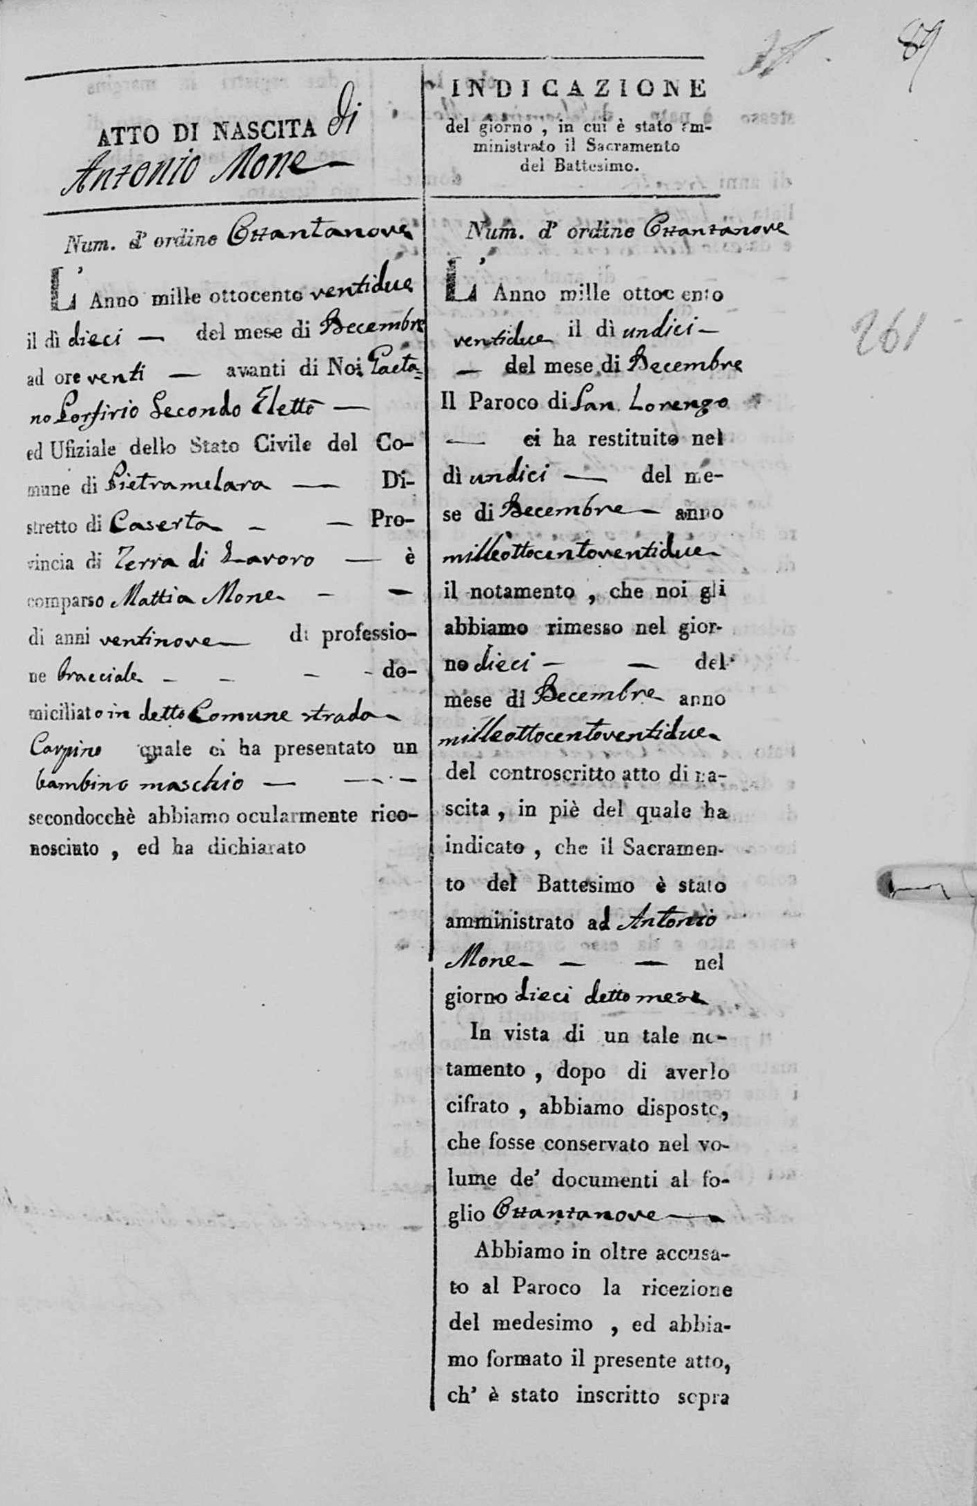 89
ATTO DI NASCITA di
Antonio Mone
Num. d' ordine Ottantanove
L' Anno mille ottocento ventidue
il dì dieci — del mese di Decembre
ad ore venti — avanti di Noi Gaeta-
no Porfirio Secondo Eletto —
ed Ufiziale dello Stato Civile del Co-
mune di Pietramelara — Di-
stretto di Caserta — — Pro-
vincia di Terra di Lavoro — è
comparso Mattia Mone — —
di anni ventinove — di professio-
ne bracciale — — — - do-
miciliato in detto Comune strada
Carpino quale ci ha presentato un
bambino maschio — — - —
secondocchè abbiamo ocularmente rico-
nosciuto , ed ha dichiarato
INDICAZIONE
del giorno , in cui è stato am-
ministrato il Sacramento
del Battesimo.
Num. d' ordine Ottantanove
L' Anno mille ottocento
ventidue il dì undici —
— del mese di Decembre
Il Paroco di San Lorenzo
— ci ha restituito nel
dì undici — del me-
se di Decembre — anno
milleottocentoventidue
il notamento , che noi gli
abbiamo rimesso nel gior-
no dieci — — del
mese di Decembre anno
milleottocentoventidue
del controscritto atto di na-
scita , in piè del quale ha
indicato , che il Sacramen-
to del Battesimo è stato
amministrato ad Antonio
Mone — — — nel
giorno dieci detto mese
In vista di un tale no-
tamento , dopo di averlo
cifrato , abbiamo disposto,
che fosse conservato nel vo-
lume de' documenti al fo-
glio Ottantanove —
Abbiamo in oltre accusa-
to al Paroco la ricezione
del medesimo , ed abbia-
mo formato il presente atto,
ch' è stato inscritto sopra
261